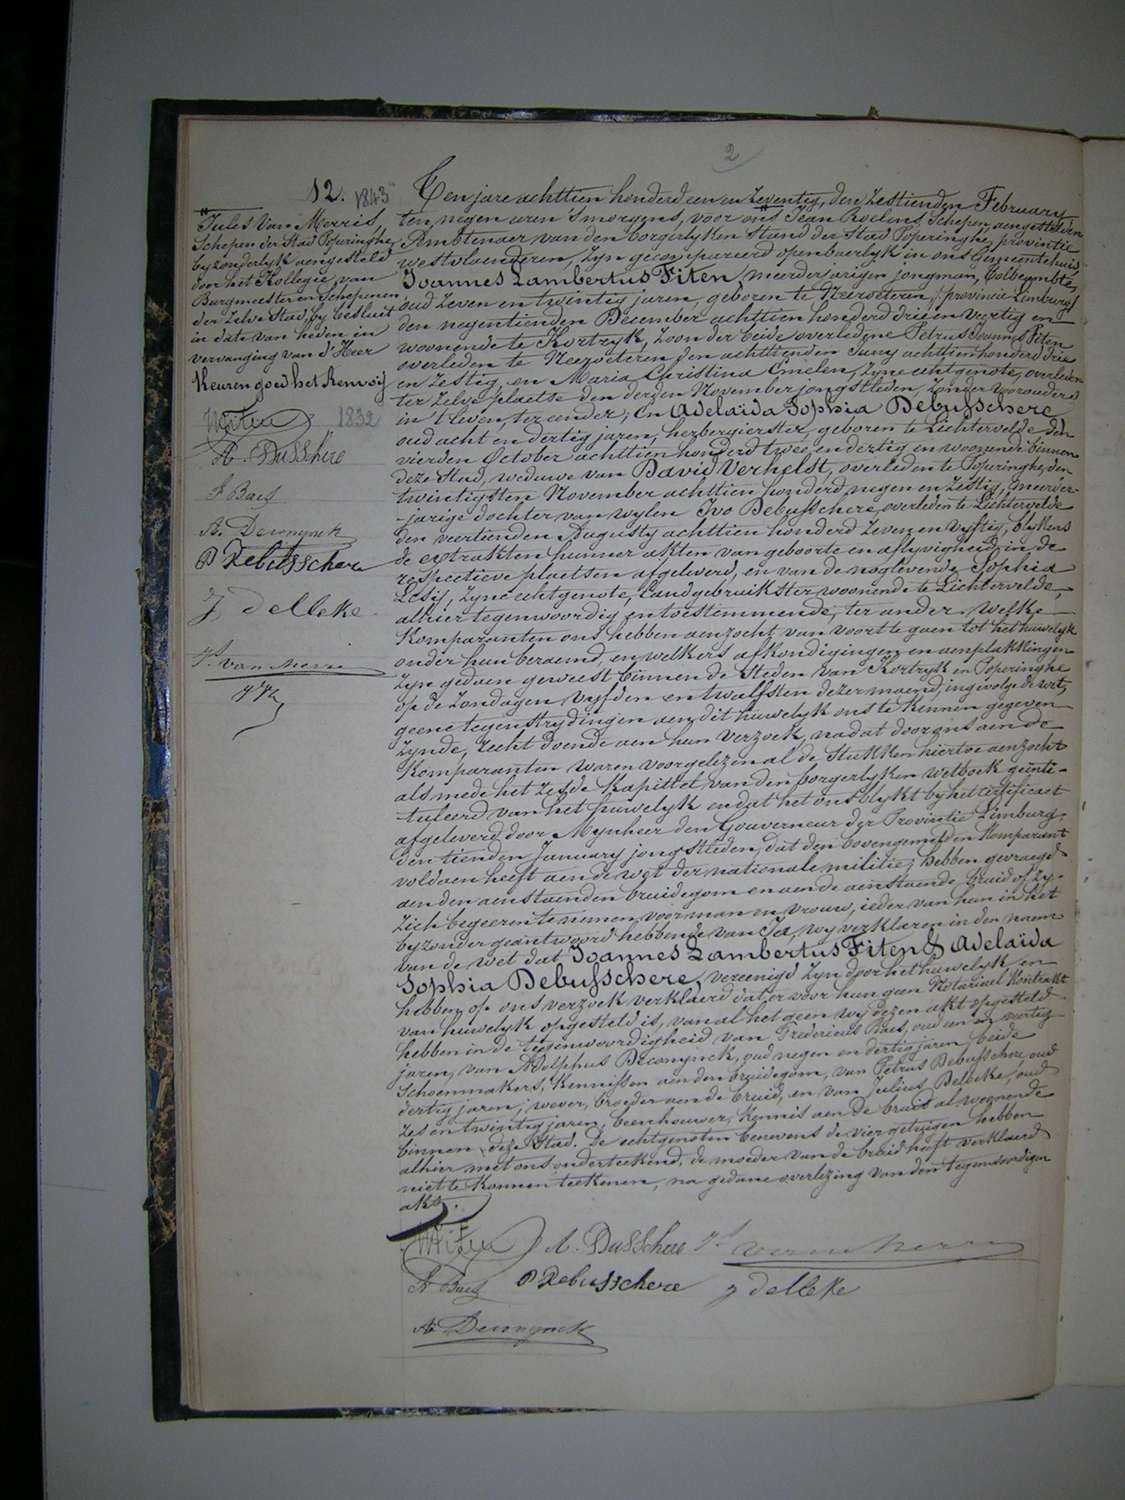 2
12. 1843
Jules Van Merris,
Schepen der Stad Poperinghe,
byzonderlyk aengesteld
door het Kollegie van
Burgmeester en Schepenen
der zelve Stad, by besluit
in date van heden, in
vervanging van d'Heer
Keuren goed het Renvooij
1832
A. DuSSchere
F Baes
A. Deconynck
P Debusschere
J delbeke
Js. van Merris
Ten jare achttien honderd een en zeventig, den zestienden February,
ten negen uren s'morgens, voor ons Jean Roelens Schepen aengestelden
Ambtenaer van den borgerlyken Stand der Stad Poperinghe, provintie
westvlaenderen, zyn gecompareerd openbaerlyk in ons Gemeentehuis
Joannes Lambertus Fiten, meerderjarigen jongman, bolbeambte,
oud zeven en twintig jaren, geboren te Neeroeteren, (provincie Limburg)
den negentienden December achttien honderd drie en veertig en
woonende te Kortryk, zoon der beide overledene Petrus Joannes Fiten
overleden te Neeroeteren den achttienden Juny achttien honderd drie
en zestig, en Maria Christina Emelen, zyne echtgenote, overleden
ter zelve plaetse den derden November jongstleden, zonder voorouders
in t'leven, ter eender, en Adelaïda Sophia Debusschere
oud acht en dertig jaren, herbergierster, geboren te Lichtervelde den
vierden October achttien honderd twee en dertig en woonende binnen
deze Stad, weduwe van David Verhelst, overleden te Poperinghe den
twintigsten November achttien honderd negen en zestig, meerder-
jarige dochter van wylen Ivo Debusschere, overleden te Lichtervelde
den veertienden Augusty achttien honderd zeven en vyftig, blykens
de extrakten hunner akten van geboorte en aflyvigheid in de
respectieve plaetsen afgeleverd, en van de noglevende Sophia
zyne echtgenote, landgebruikster woonende te Lichtervelde,
alhier tegenwoordig en toestemmende, ter ander. welke
Komparanten ons hebben aenzocht van voort te gaen tot het huwelyk
onder hun beraemd, en welkers afkondigingen en aenplakkingen
zyn gedaen geweest binnen de Steden van Kortryk en Poperinghe
op de zondagen vyfden en twalfsten dezer maend, ingevolge de wet,
geene tegenstrydingen aen dit huwelyk ons te kennen gegeven
zynde, recht doende aen hun verzoek, nadat door ons aen de
Komparanten waren voorgelezen al de Stukken hiertoe aenzocht
als mede het zesde Kapittel van den borgerlyken wetboek geinti-
tuleerd van het huwelyk en dat het ons blykt by het certificaet
afgeleverd door Mynheer den Gouverneur der Provincie Limburg,
den tienden January jongstleden, dat den bovengemelden Komparant
voldaen heeft aen de wet der nationale militie; hebben gevraegd
aen den aenstaenden bruidegom en aen de aenstaende bruid of zy
zich begeeren te nemen voor man en vrouw, ieder van hun in het
byzonder geäntwoord hebbende van Ja, wy verklaren in den naem
van de wet dat Joannes Lambertus Fiten & Adelaïda
Sophia Debusschere, vereenigd zyn door het huwelyk en
hebben op ons verzoek verklaerd dat er voor hun geen Notariael Kontrakt
van huwelyk opgesteld is, van al het geen wy dezen akt opgesteld
hebben in de tegenwoordigheid van Fredericus Baes, oud een en veertig
jaren, van Adolphus Deconynck, oud negen en dertig jaren, beide
Schoenmakers, Kennissen aen den bruidegom, van Petrus Debusschere, oud
dertig jaren, wever, broeder aen de bruid, en van Julius Delbeke, oud
zes en twintig jaren, beenhouwer, Kennis aen de bruid al woonende
binnen deze Stad. De echtgenoten benevens de vier getuigen hebben
alhier met ons onderteekend, de moeder van de bruid heeft verklaerd
niet te konnen teekenen, na gedane overlezing van den tegenwoordigen
akt.
A. DuSSchere Js. van Merris
F Baes P Debusschere J delbeke
A. Deconynck